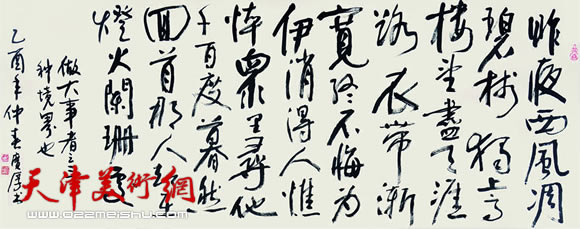 昨夜西風凋
碧树獨上高
樓望盡天涯
路衣帶漸
寬終不悔為
伊消得人憔
悴眾里尋他
千百度暮然
回首那人却在
燈火闌珊處
做大事者之三
种境界也
乙酉年仲春慶厚书
天津美術網
www.022meishu.com